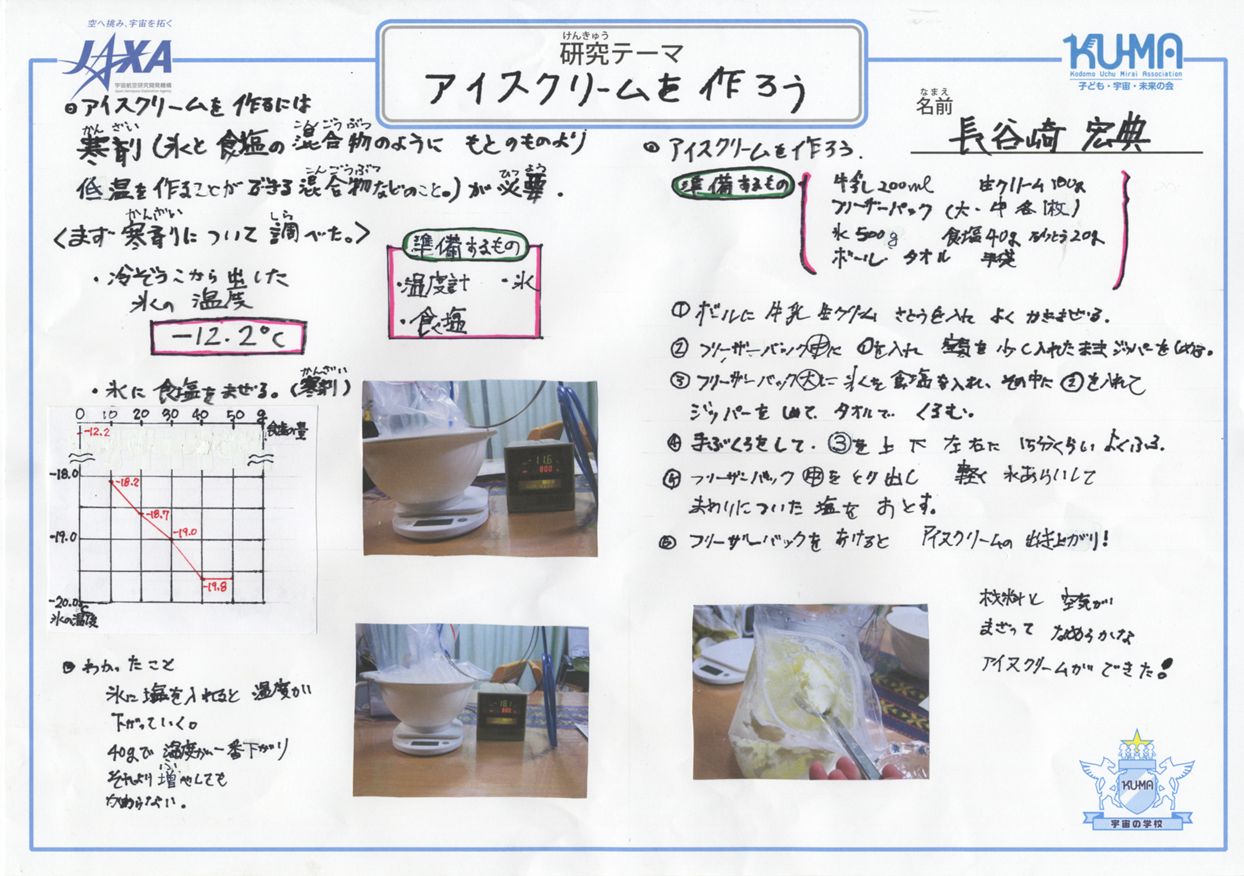 空へ挑み、宇宙を拓く
JAXA
宇宙航空研究開発機構
Japan Aerospace Exploration Agency
けんきゅう
研究テーマ
アイスクリームを作ろう
KU-MA
Kodomo Uchu Mirai Association
子ども・宇宙・未来の会
なまえ
名前
長谷崎 宏典
アイスクリームを作るには
かんざい こんごうぶつ
寒剤(氷と食塩の混合物のように もとのものより
こんごうぶつ ひつよう
低温を作ることができる混合物などのこと。)が必要.
かんざい しら
〈まず寒剤について調べた。〉
・冷ぞうこから出した
氷の 温度
-12.2℃
準備するもの
・温度計 ・氷
・食塩
かんざい
・氷に食塩をまぜる。(寒剤)
0 10 20 30 40 50 g
食塩の量
-12.2
-18.0
-18.2
-18.7
-19.0
-19.0
-19.8
-20.0
℃
氷の温度
わかったこと
氷に塩を入れると 温度が
下がっていく。
40gで 温度が一番下がり
ふ
それより増やしても
かわらない。
-11.6
800
アイスクリームを作ろう.
準備するもの
牛乳200ml 生クリーム100g
フリーザーパック(大・中 各1枚)
氷500g 食塩40g さとう20g
ボール タオル 手袋
① ボールに 牛乳 生クリーム さとうを入れ よく かきまぜる.
② フリーザーパック中に ①を入れ 空気を 少し入れたまま ジッパーをしめる。
③ フリーザーパック大に 氷と食塩を入れ、その中に②を入れて
ジッパーを しめて タオルで くるむ。
④ 手ぶくろをして. ③を上 下 左右に 15分くらい よくふる.
⑤ フリーザーパック 中をとり出し 軽く 水あらいして
まわりについた 塩を おとす。
⑥ フリーザーパックを あけると アイスクリームの 出き上がり!
材料と 空気が
まざって なめらかな
アイスクリームが できた!
KU-MA
宇宙の学校